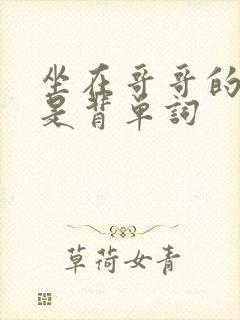 坐在哥哥的
是背单词
草荷女青